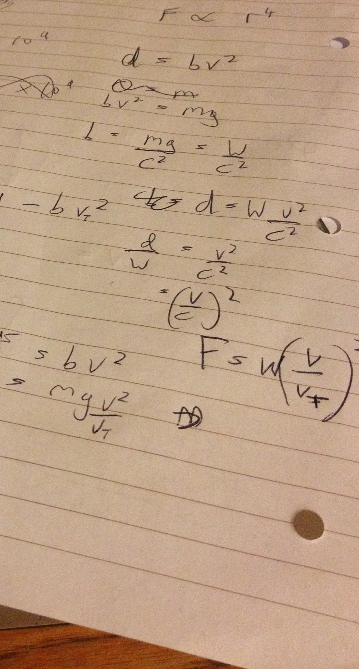 F ∝ r⁴
d = bv²
bv² = mg
b = mg/c² = W/c²
- b v_T² d = W v²/c²
d/W = v²/c²
= (v/c)²
= bv² F = W(v/v_T)
= mg v²/v_T